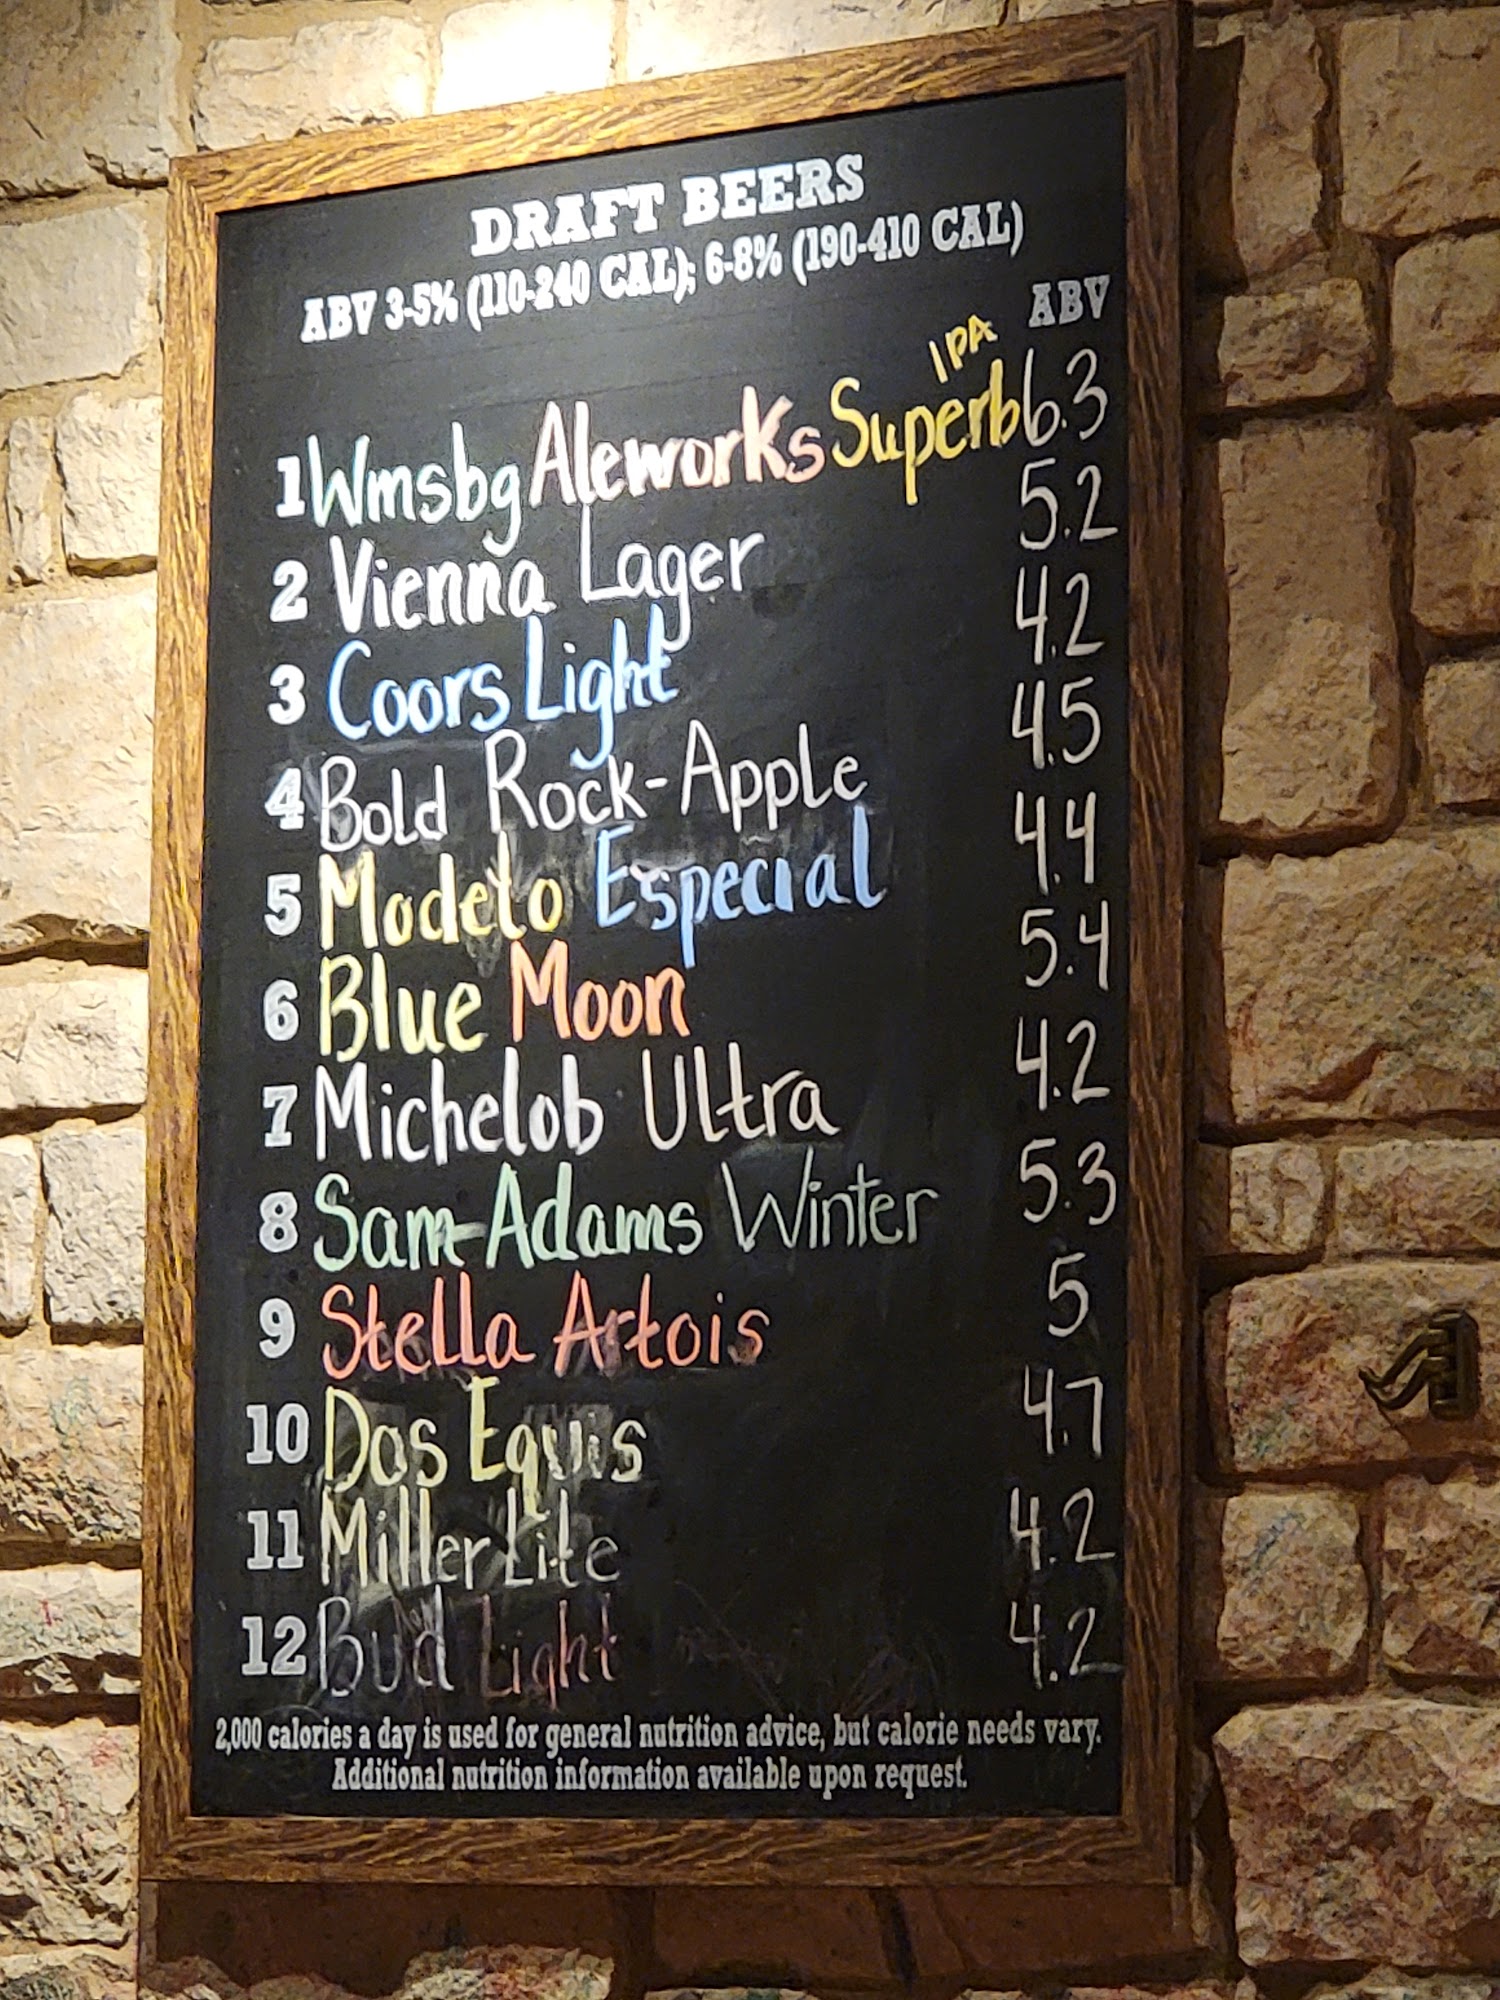 DRAFT BEERS
ABV 3-5% (110-240 CAL); 6-8% (190-410 CAL)
ABV
IPA
1 Wmsbg Aleworks Superb 6.3
2 Vienna Lager 5.2
3 Coors Light 4.2
4 Bold Rock-Apple 4.5
5 Modelo Especial 4.4
6 Blue Moon 5.4
7 Michelob Ultra 4.2
8 Sam-Adams Winter 5.3
9 Stella Artois 5
10 Dos Equis 4.7
11 Miller Lite 4.2
12 Bud Light 4.2
2,000 calories a day is used for general nutrition advice, but calorie needs vary.
Additional nutrition information available upon request.